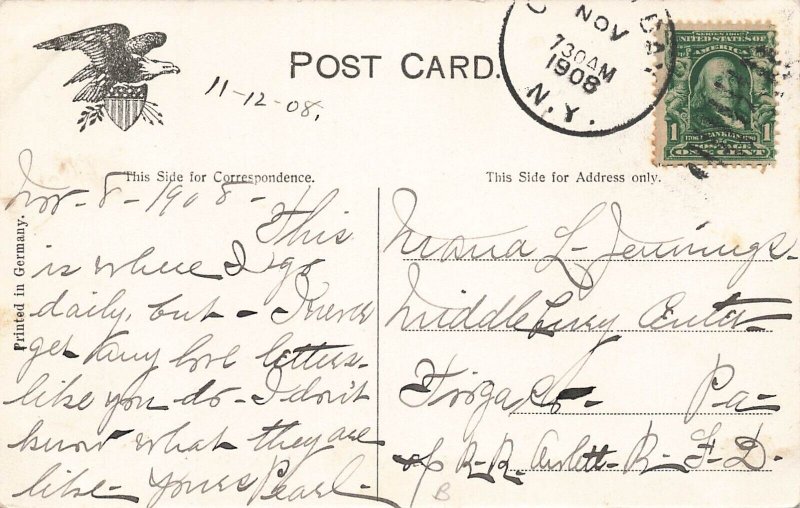 POST CARD.
11-12-08.
NOV
730AM
1908
N.Y.
SERIES 1902
UNITED STATES OF
AMERICA
1 FRANKLIN 1
POSTAGE
ONE CENT
This Side for Correspondence.
This Side for Address only.
Printed in Germany.
Nov-8-1908-
This
is where I go
daily, but - I never
get any love letters-
like you do - I don't
know what they are
like - Yours Pearl -
L. Jennings-
Middlebury Center-
Tioga Co- Pa-
R.R. R-F-D-
B